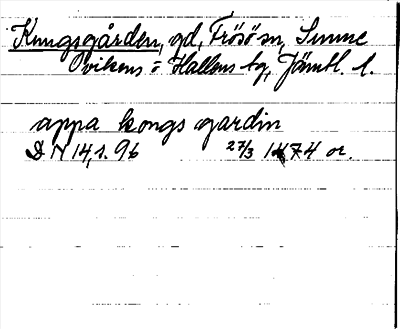 Kungsgården, gd, Frösö sn, Sunne
Ovikens o Hallens tg, Jämtl. l.
appa kongs gardin
DN 14, s. 96 27/3 1474 or.